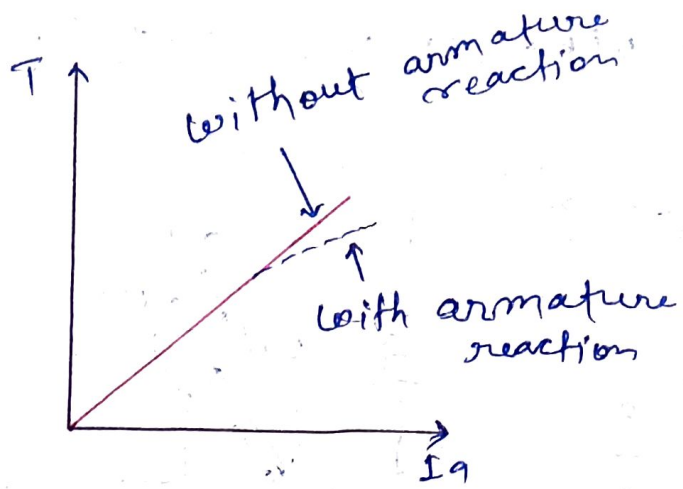 T
without armature
reaction
with armature
reaction
Ia